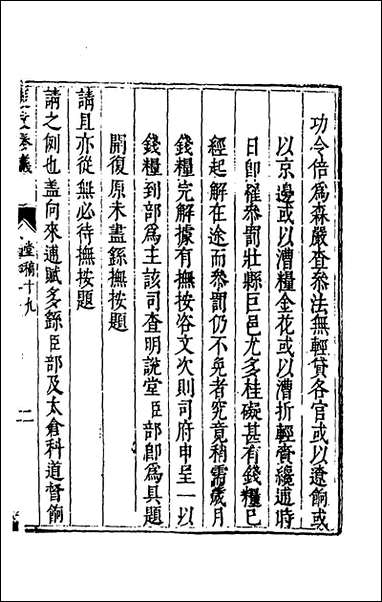 功令倍為森嚴查叅法無輕貸各官或以遼餉或
以京邊或以漕糧金花或以漕折輕賫纔逋時
日即罹叅罰壯縣巨邑尤多挂礙甚有錢糧已
經起解在途而叅罰仍不免者究竟稍需歲月
錢糧完解據有撫按咨文次則司府申呈一以
錢糧到部為主該司查明說堂臣部卽為具題
開復原未盡繇撫按題
請且亦從無必待撫按題
請之例也盖向來逋賦多繇臣部及太倉科道督餉
堂稿十九
二